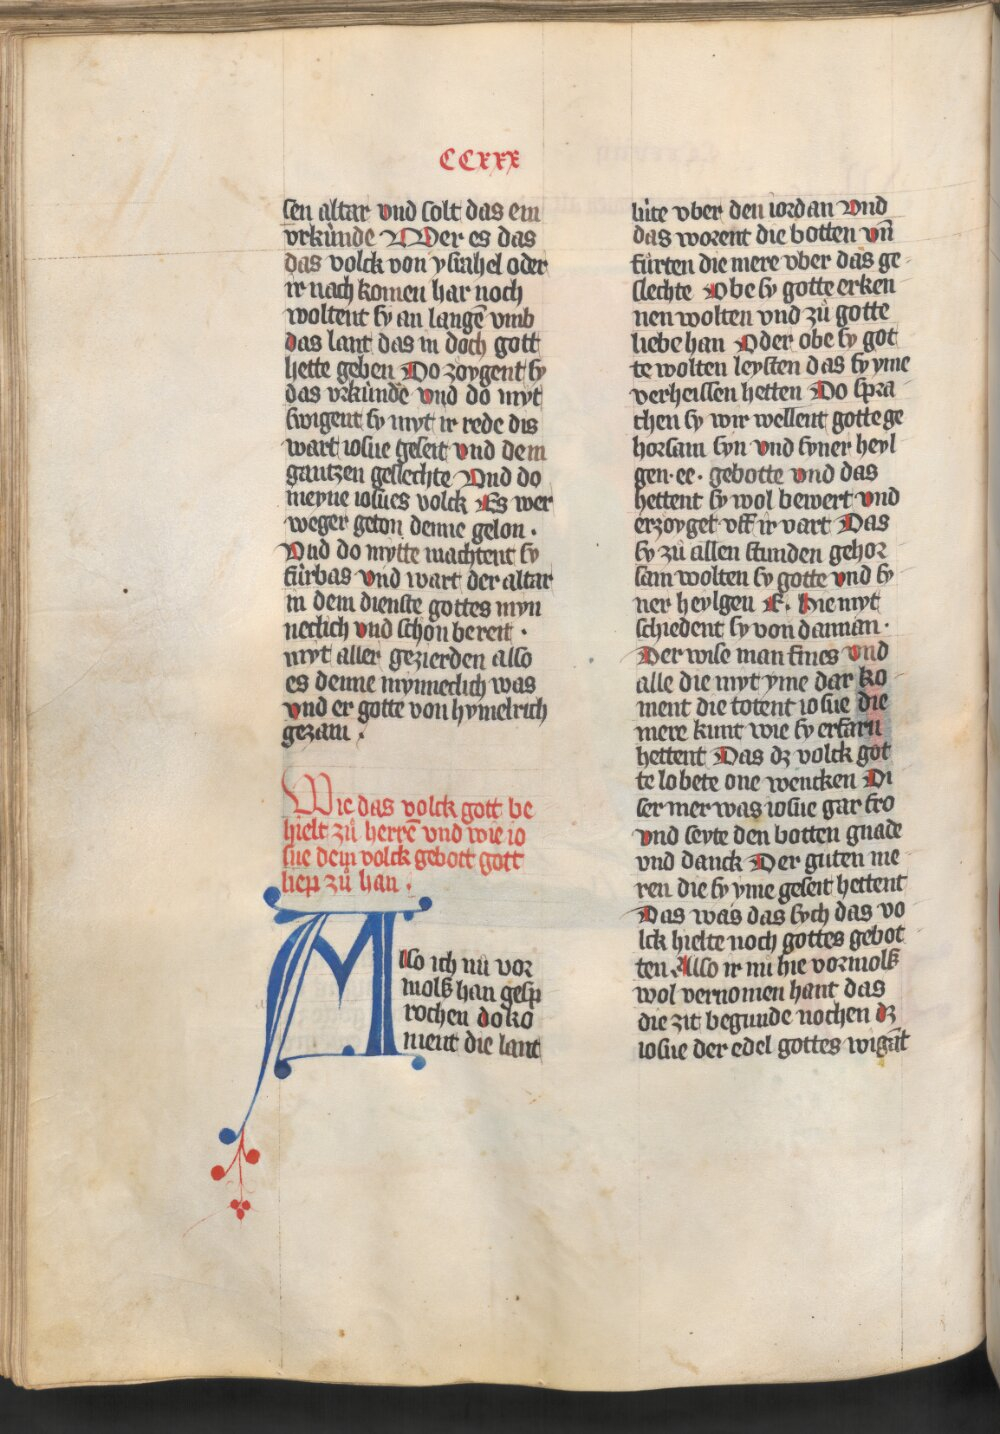 CCxxx
sen altar vnd solt das ein
vrkúnde Wer es das
das volck von ysrahel oder
ir nach komen har noch
woltent sy an langē vmb
das lant das in doch gott
hette geben Do zoygent sy
das vrkúnde vnd do myt
swigent sy myt ir rede dis
wart iosue geseit vnd dem
gantzen geslechte Vnd do
meyne iosues volck Es wer
weger geton denne gelon ·
Vnd do mytte machtent sy
fúrbas vnd wart der altar
in dem dienste gottes myn
neclich vnd schon bereit ·
myt aller gezierden also
es denne mynneclich was
vnd er gotte von hymelrich
gezam ·
Wie das volck gott be
hielt zů herrē vnd wie io
sue dem volck gebott gott
liep zů han ·
Also ich nů vor
molß han gesp
rochen do ko
ment die lant
lúte vber den iordan Vnd
das worent die botten vn̄
fúrten die mere vber das ge
slechte Obe sy gotte erken
nen wolten vnd zů gotte
liebe han Oder obe sy got
te wolten leysten das sy yme
verheissen hetten Do spra
chen sy wir wellent gotte ge
horsam syn vnd syner heyl
gen · ee · gebotte vnd das
hettent sy wol bewert vnd
erzoyget vff ir vart Das
sy zů allen stunden gehor
sam wolten sy gotte vnd sy
ner heylgen E · Hie myt
schiedent sy von dannan ·
Der wise man fines vnd
alle die myt yme dar ko
ment die totent iosue die
mere kunt wie sy erfarn
hettent Das dz volck got
te lobete one wencken Di
ser mer was iosue gar fro
vnd seyte den botten gnade
vnd danck Der guten me
ren die sy yme geseit hettent
Das was das sych das vo
lck hielte noch gottes gebot
ten Also ir nů hie vormolß
wol vernomen hant das
die zit begunde nochen dz
iosue der edel gottes wigāt